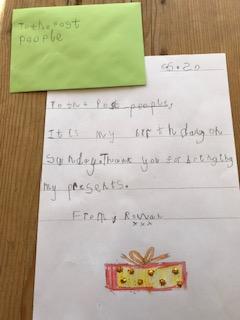 To the post
people
05.20
To the Post people,
It is my birthday on
Sunday. Thank you for bringing
my presents.
From, Rowan
xxx